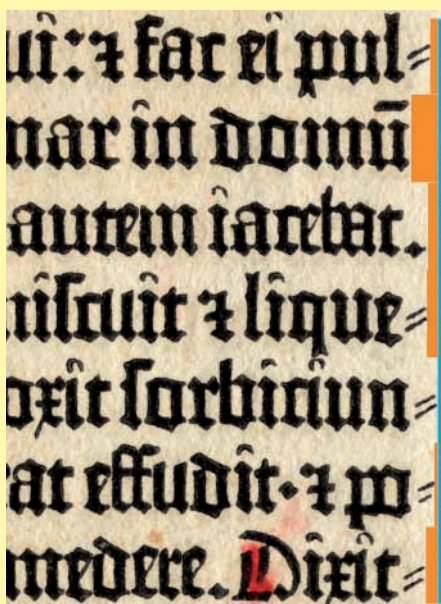 ui:⁊ fac ei pul⸗
mar in domū
autem iacebat.
miſcuit ⁊ lique⸗
oxit ſorbiciun⸗
at effudit·⁊ po⸗
medere. Dixit⸗